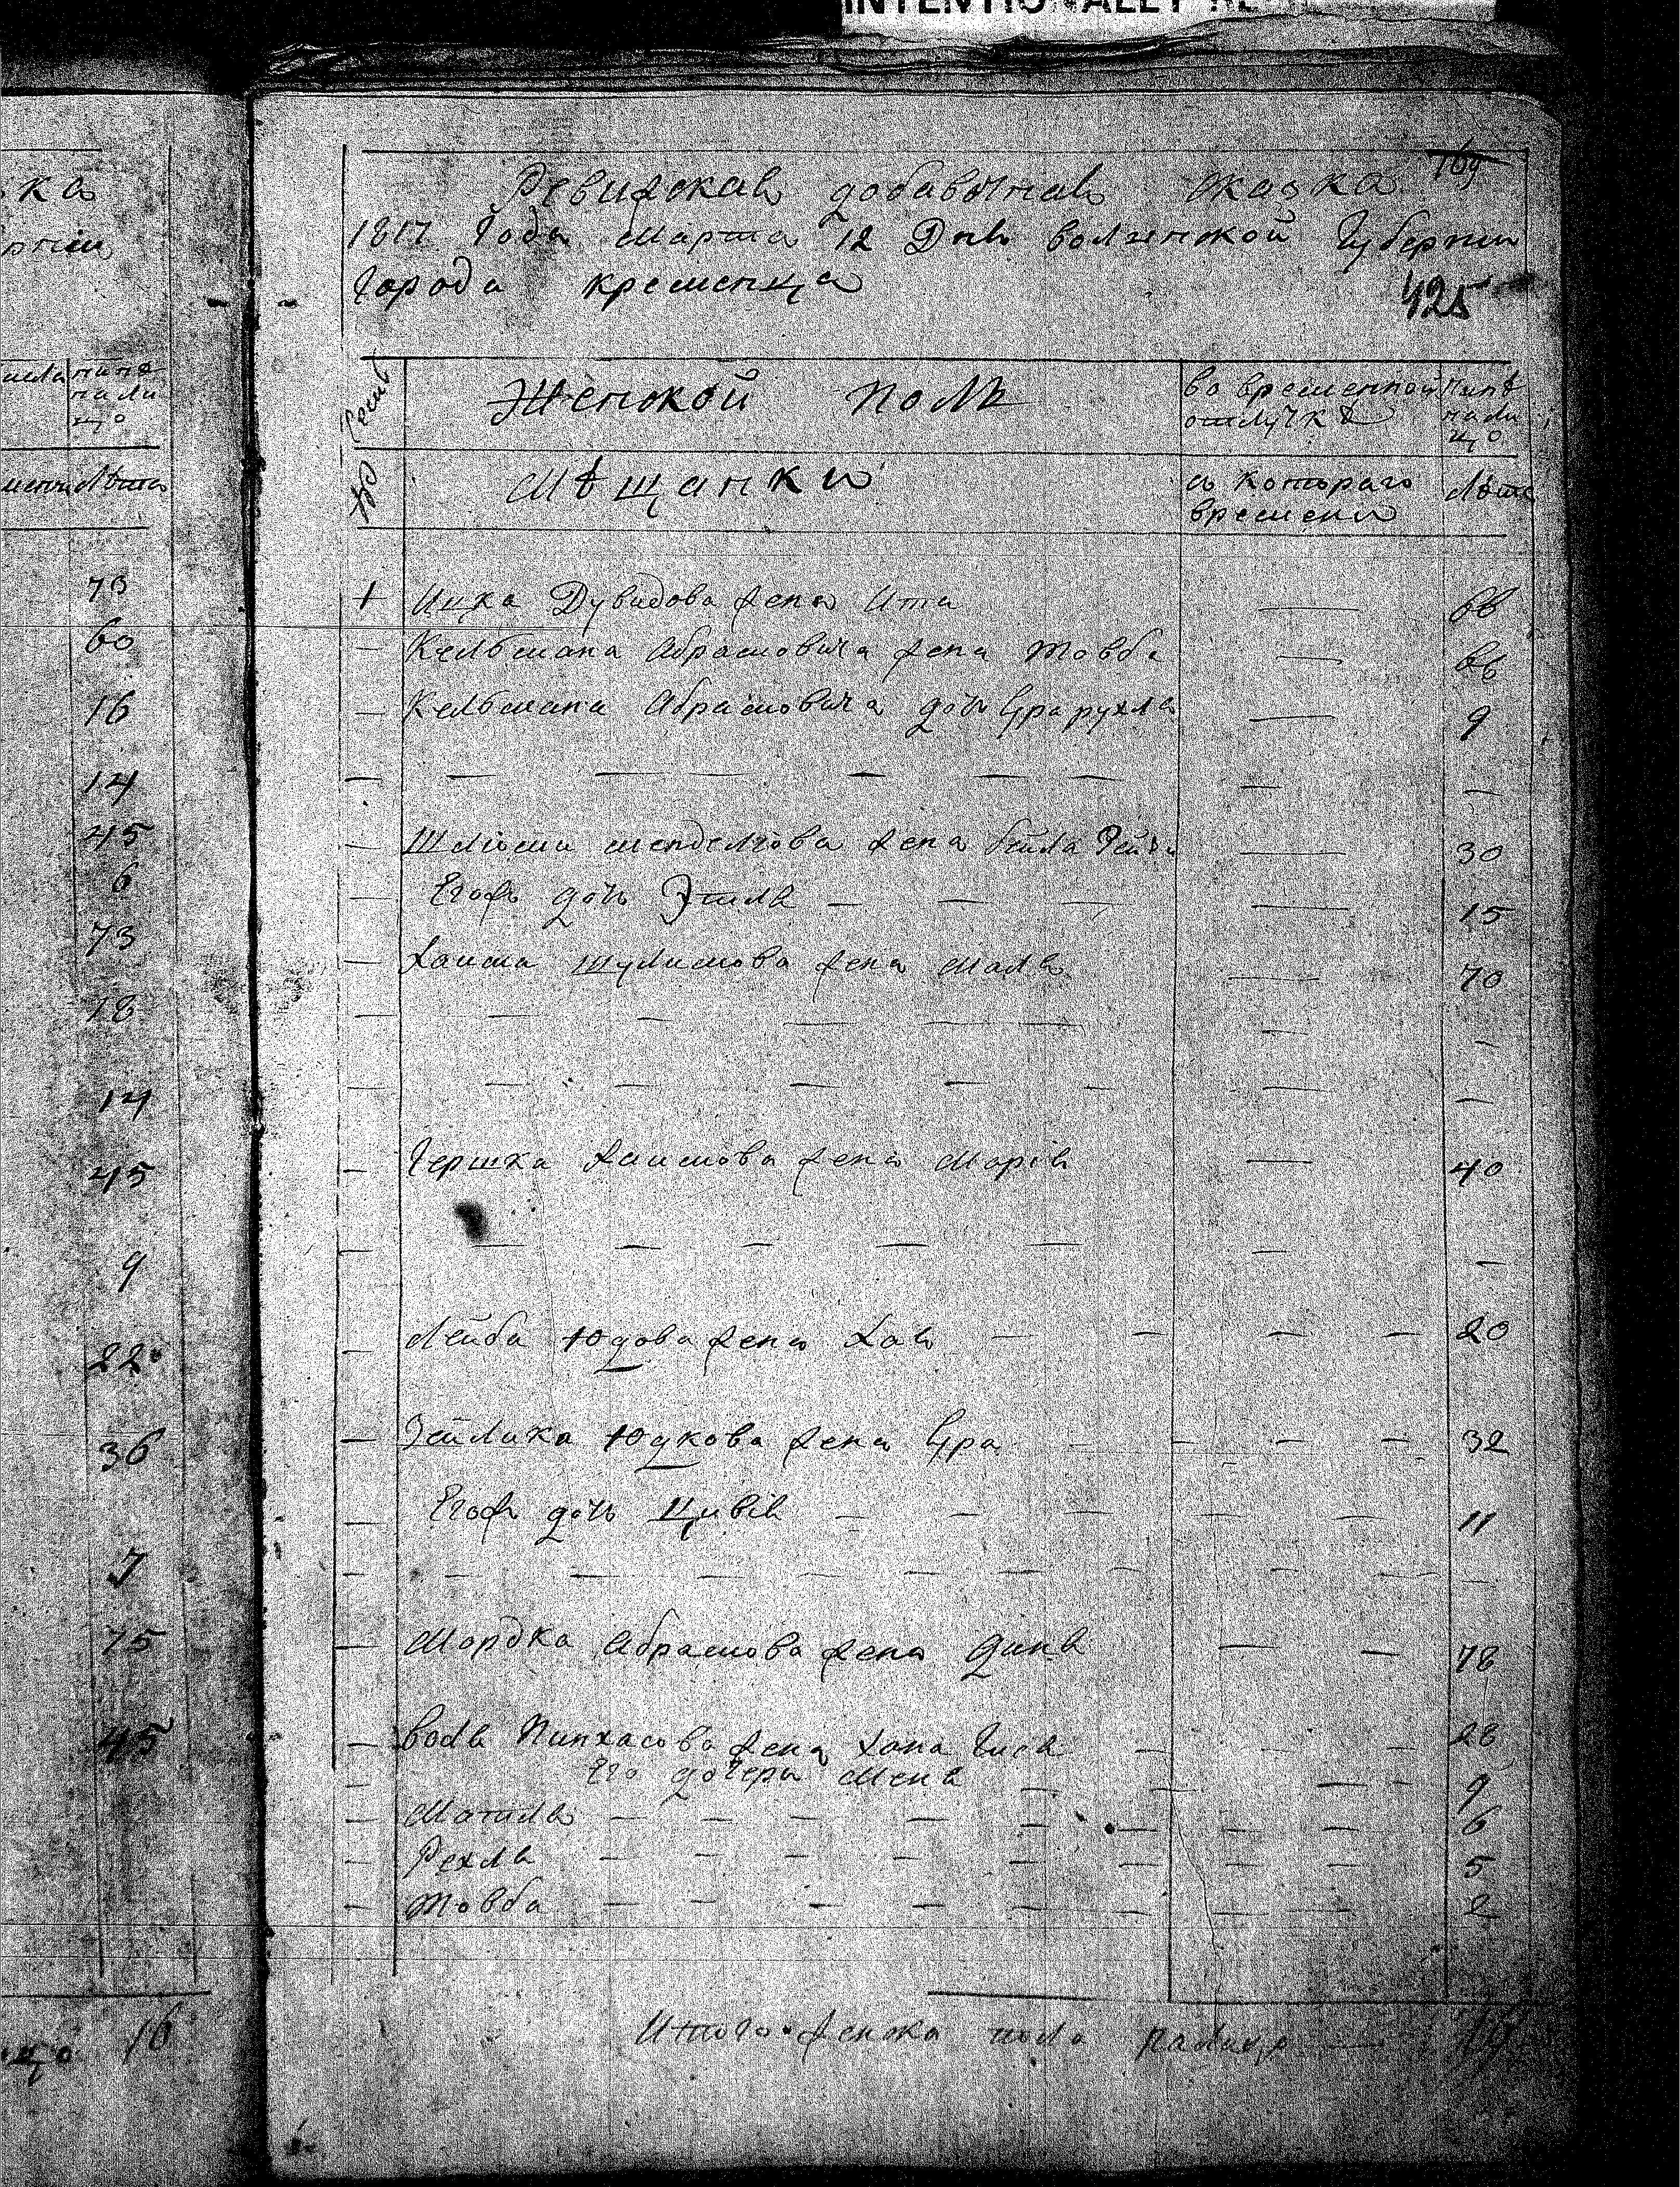 INTENTIONALLY RE
169
Ревизская добавочная сказка
1817 Года Марта 12 Дня волынской Губернии
Города кременца
425
Семьи Женской Полъ во временной отлучкѣ нынѣ на лицо
№ Мѣщанки съ котораго времени Лѣта
1 Ицка Дувидова жена Ита — 66
— Кельмана Абрамовича жена Товба — 66
— Кельмана Абрамовича дочь — 9
— — — — — — — — —
— Шліоми менделіова жена бейла Рейзи — 30
— Егожъ дочь Этля — — — — 15
— Хаима шулимова жена Маля — 70
— — — — — — — —
— — — — — — — —
— Гершка Хаимова жена Марія — 40
— — — — — — — —
— Лейба Юдова жена Хая — — — — 20
— Зейлика Юдкова жена — — — — 32
— Егожъ дочь Цивія — — — — 11
— — — — — — — — — — —
— Мордка Абрамова жена Диня — — 78
— Пинхасова жена Хана — — — 28
— Его дочери Меня — — — 9
— Матля — — — — — — — — 6
— Рехля — — — — — — — — 5
— Товба — — — — — — — — 2
Итого женска пола налицо — 19
ка
нынѣ
на ли
цо
Лѣта
73
60
16
14
45
6
73
18
14
45
9
22
36
7
75
45
цо 16